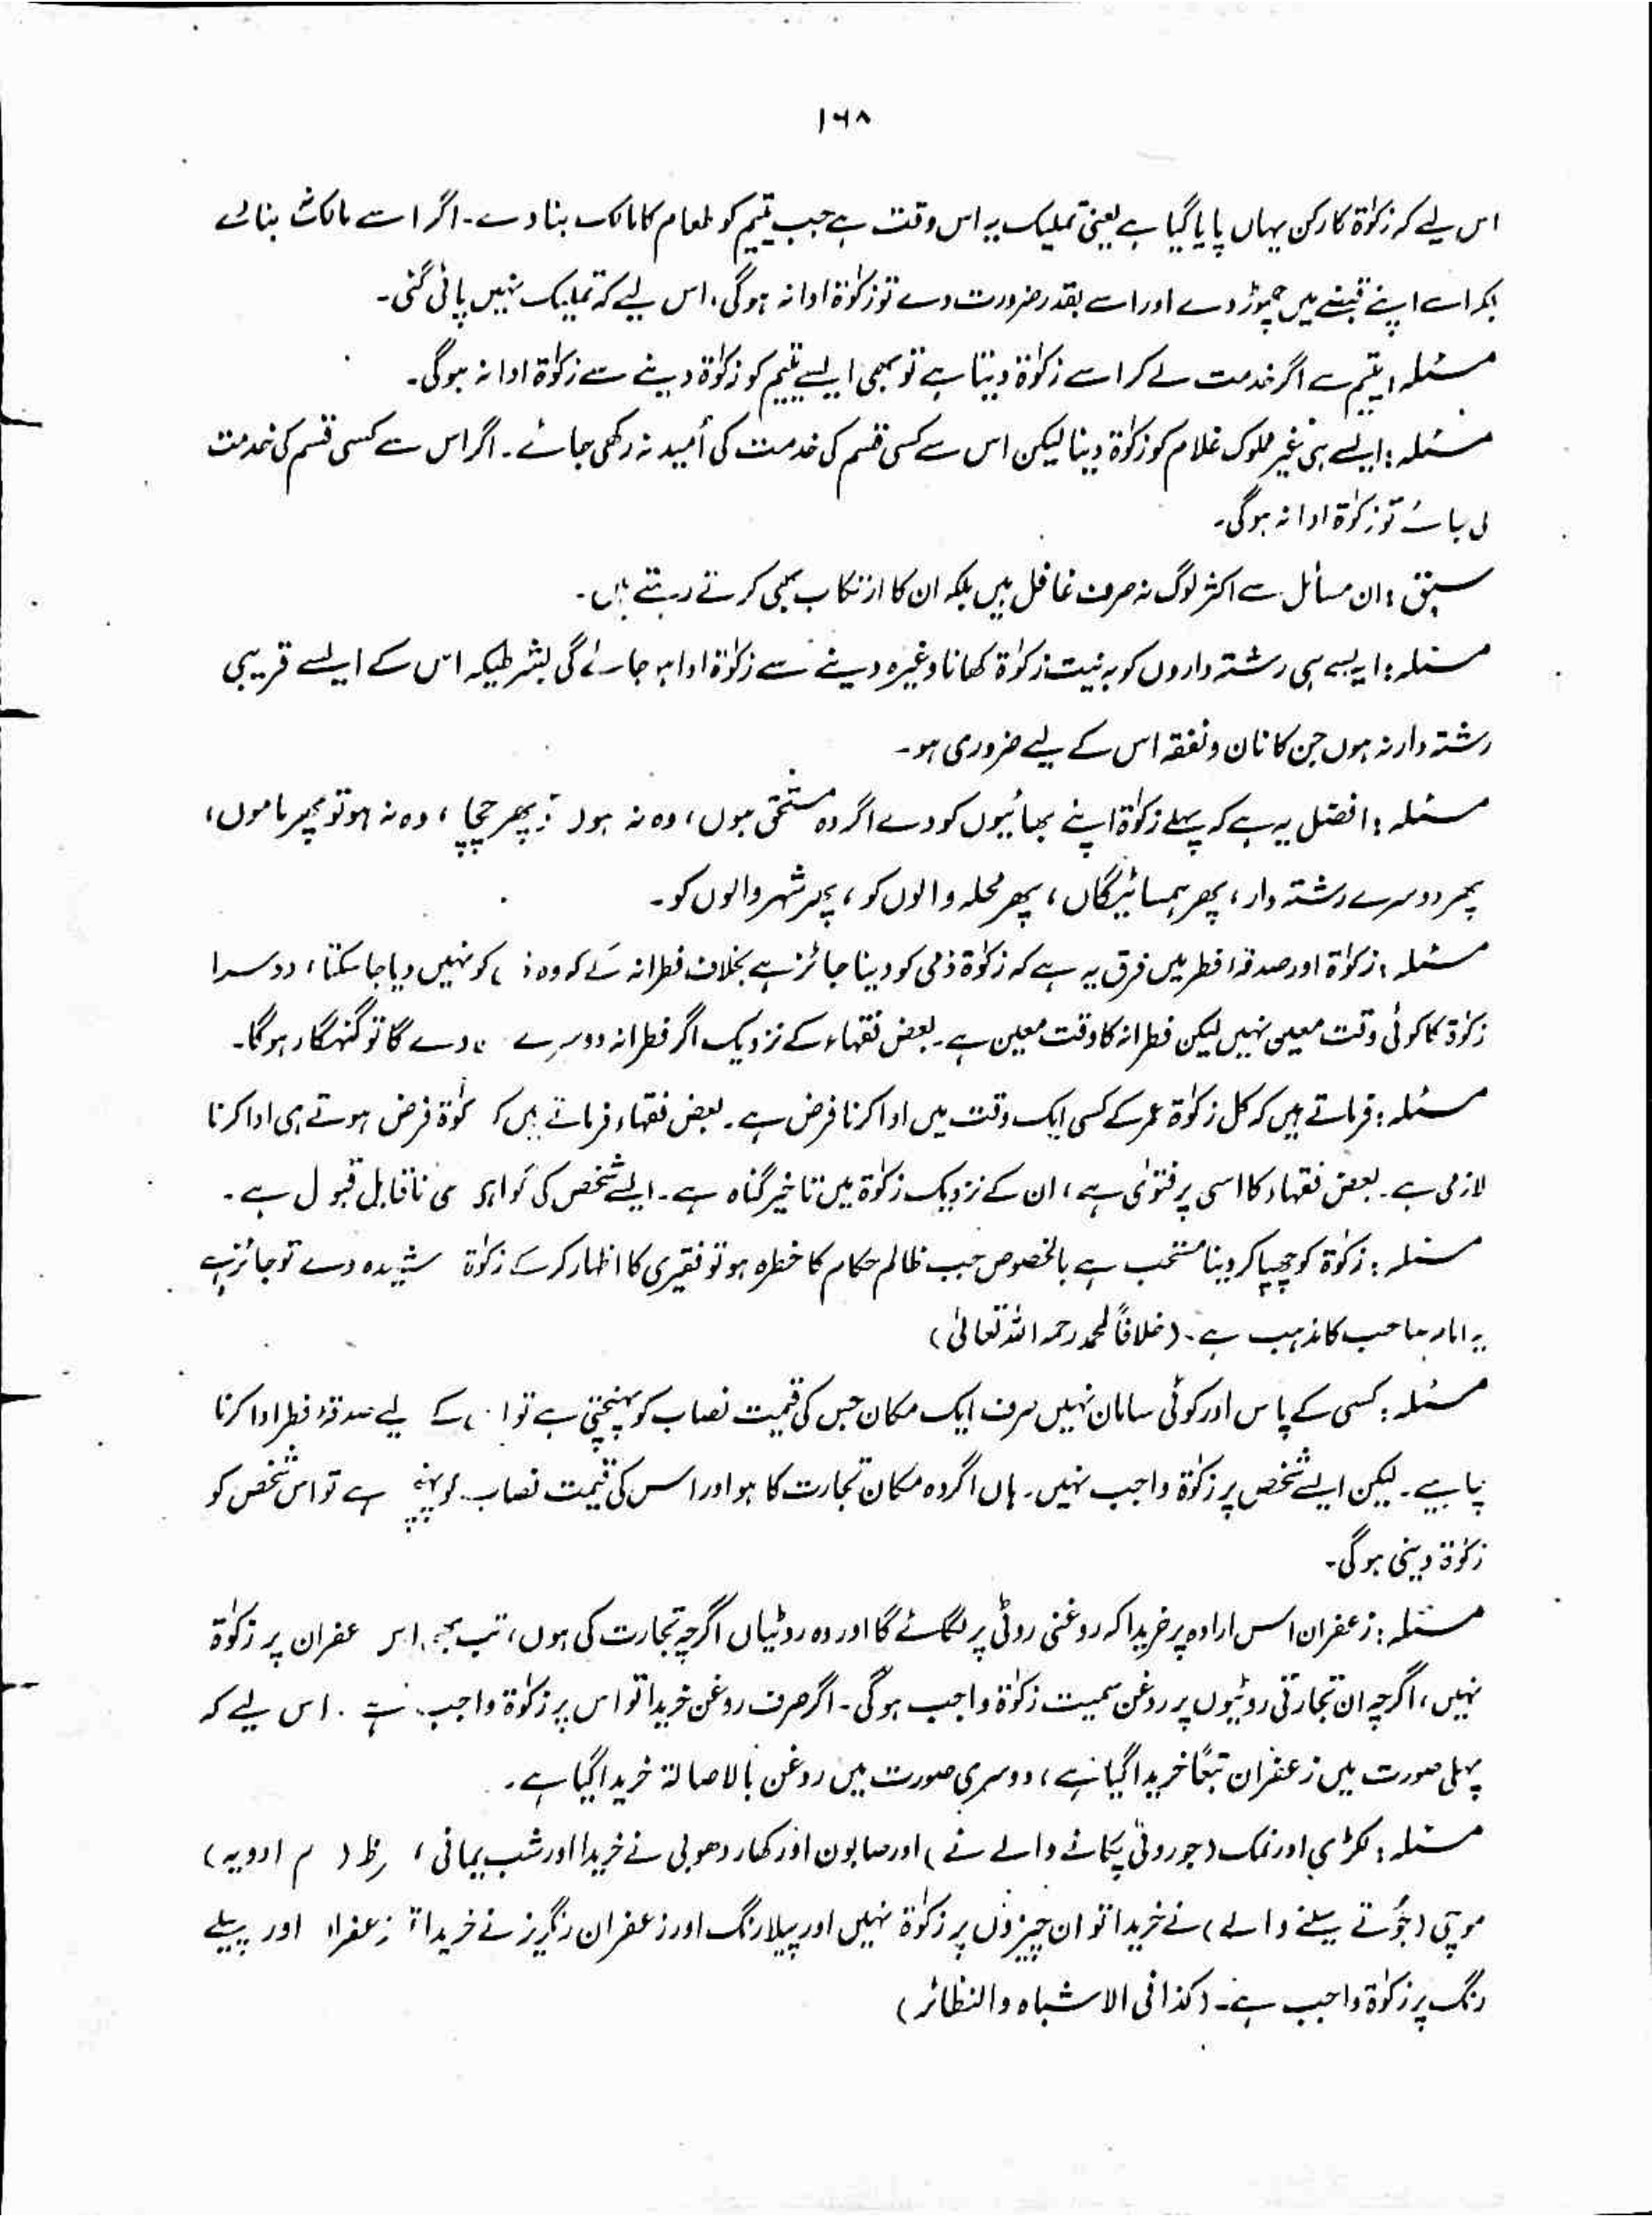 ۱۶۸
اس لیے کہ زکوٰۃ کا رکن یہاں پایا گیا ہے یعنی تملیک یہ اس وقت ہے جب یتیم کو طعام کا مالک بنا دے۔ اگر اسے مالک بنائے
بکہ اسے اپنے قبضے میں چھوڑ دے اور اسے بقدر ضرورت دے تو زکوٰۃ ادا نہ ہوگی، اس لیے کہ تملیک نہیں پائی گئی۔
مسئلہ: یتیم سے اگر خدمت لے کر اسے زکوٰۃ دیتا ہے تو بھی ایسے یتیم کو زکوٰۃ دینے سے زکوٰۃ ادا نہ ہوگی۔
مسئلہ: ایسے ہی غیر مملوک غلام کو زکوٰۃ دینا لیکن اس سے کسی قسم کی خدمت کی اُمید نہ رکھی جائے۔ اگر اس سے کسی قسم کی خدمت
لی جائے تو زکوٰۃ ادا نہ ہوگی۔
سبق: ان مسائل سے اکثر لوگ نہ صرف غافل ہیں بلکہ ان کا ارتکاب بھی کرتے رہتے ہیں۔
مسئلہ: ایسے ہی رشتہ داروں کو بہ نیت زکوٰۃ کھانا وغیرہ دینے سے زکوٰۃ ادا ہو جائے گی بشرطیکہ اس کے ایسے قریبی
رشتہ دار نہ ہوں جن کا نان و نفقہ اس کے لیے ضروری ہو۔
مسئلہ: افضل یہ ہے کہ پہلے زکوٰۃ اپنے بھائیوں کو دے اگر وہ مستحق ہوں، وہ نہ ہوں پھر چچا، وہ نہ ہو تو پھر ماموں،
پھر دوسرے رشتہ دار، پھر ہمسائیگاں، پھر محلہ والوں کو، پھر شہر والوں کو۔
مسئلہ: زکوٰۃ اور صدقۂ فطر میں فرق یہ ہے کہ زکوٰۃ ذمی کو دینا جائز ہے بخلاف فطرانہ کے کہ وہ کو نہیں دیا جا سکتا، دوسرا
زکوٰۃ کا کوئی وقت معین نہیں لیکن فطرانہ کا وقت معین ہے۔ بعض فقہاء کے نزدیک اگر فطرانہ دوسرے دے گا تو گنہگار ہوگا۔
مسئلہ: فرماتے ہیں کہ کل زکوٰۃ عمر کے کسی ایک وقت میں ادا کرنا فرض ہے۔ بعض فقہاء فرماتے ہیں کہ کوٰۃ فرض ہوتے ہی ادا کرنا
لازمی ہے۔ بعض فقہاء کا اسی پر فتوٰی ہے، ان کے نزدیک زکوٰۃ میں تاخیر گناہ ہے۔ ایسے شخص کی گواہی ناقابل قبول ہے۔
مسئلہ: زکوٰۃ کو چھپا کر دینا مستحب ہے بالخصوص جب ظالم حکام کا خطرہ ہو تو فقیری کا اظہار کرکے زکوٰۃ شیدہ دے تو جائز ہے
یہ امام صاحب کا مذہب ہے۔ (خلافاً لمحمد رحمہ اللہ تعالیٰ)
مسئلہ: کسی کے پاس اور کوئی سامان نہیں صرف ایک مکان جس کی قیمت نصاب کو پہنچتی ہے تو کے لیے صدقۂ فطر ادا کرنا
چاہیے۔ لیکن ایسے شخص پر زکوٰۃ واجب نہیں۔ ہاں اگر وہ مکان تجارت کا ہو اور اس کی قیمت نصاب کو پہنچے ہے تو اس شخص کو
زکوٰۃ دینی ہوگی۔
مسئلہ: زعفران اس ارادہ پر خریدا کہ روغنی روٹی پر لگائے گا اور وہ روٹیاں اگرچہ تجارت کی ہوں، تب بھی اس عفران پر زکوٰۃ
نہیں، اگرچہ ان تجارتی روٹیوں پر روغن سمیت زکوٰۃ واجب ہوگی۔ اگر صرف روغن خریدا تو اس پر زکوٰۃ واجب ہے۔ اس لیے کہ
پہلی صورت میں زعفران تبعًا خریدا گیا ہے، دوسری صورت میں روغن بالاصالۃ خریدا گیا ہے۔
مسئلہ: لکڑی اور نمک (جو روٹی پکانے والے نے) اور صابون اور کھار دھوبی نے خریدا اور شب یمانی، (م ادویہ)
موچی (جُوتے سینے والے) نے خریدا تو ان چیزوں پر زکوٰۃ نہیں اور پیلا رنگ اور زعفران رنگریز نے خریدا زعفران اور پیلے
رنگ پر زکوٰۃ واجب ہے۔ (کذا فی الاشباہ والنظائر)